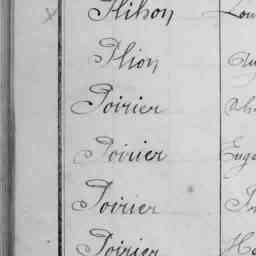 Plihon Lou
Plion Au
Poirier
Poirier Euge
Poirier
Poirier He